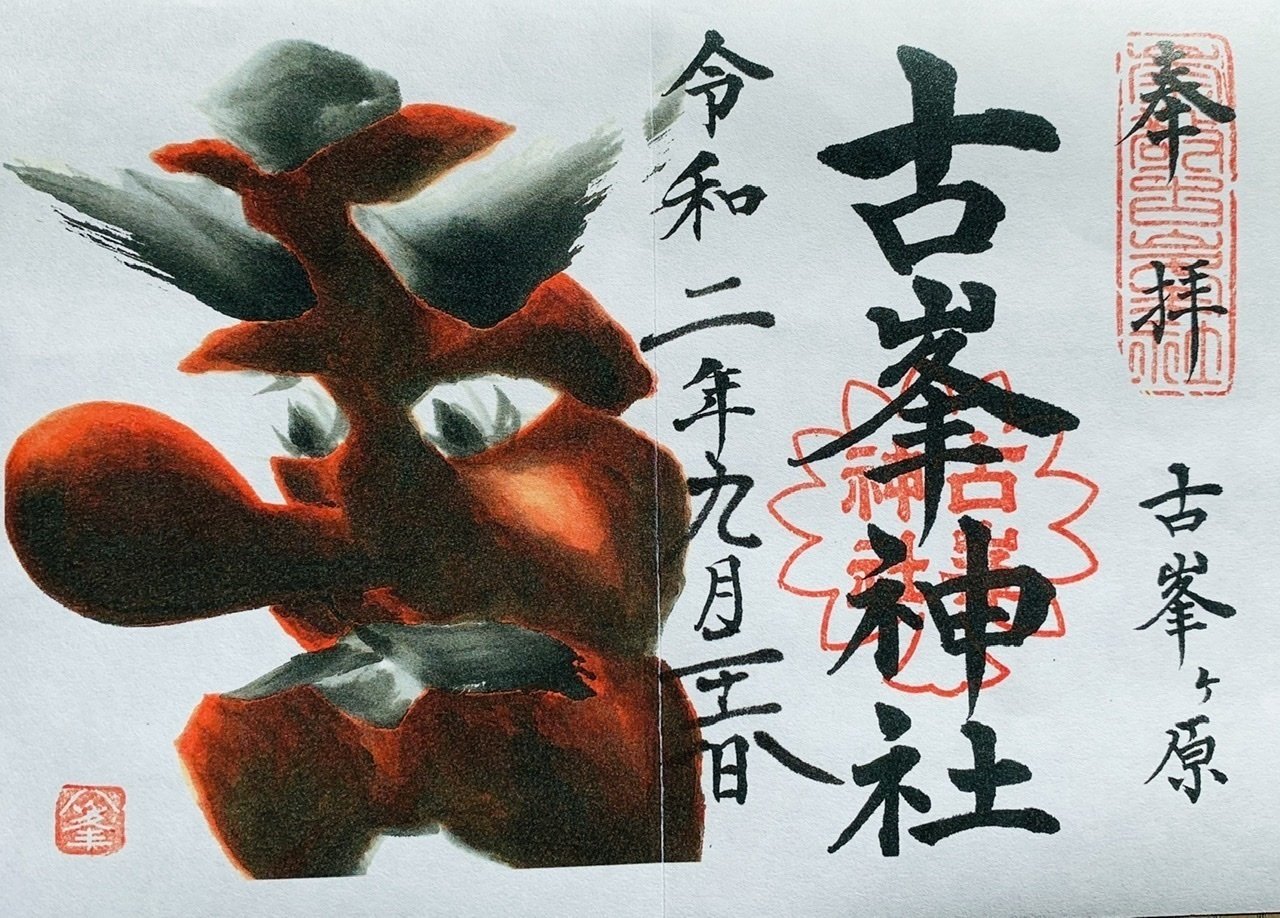 奉拝
古峯ヶ原
古峯神社
古峯
神社
令和二年九月二十六日
峯